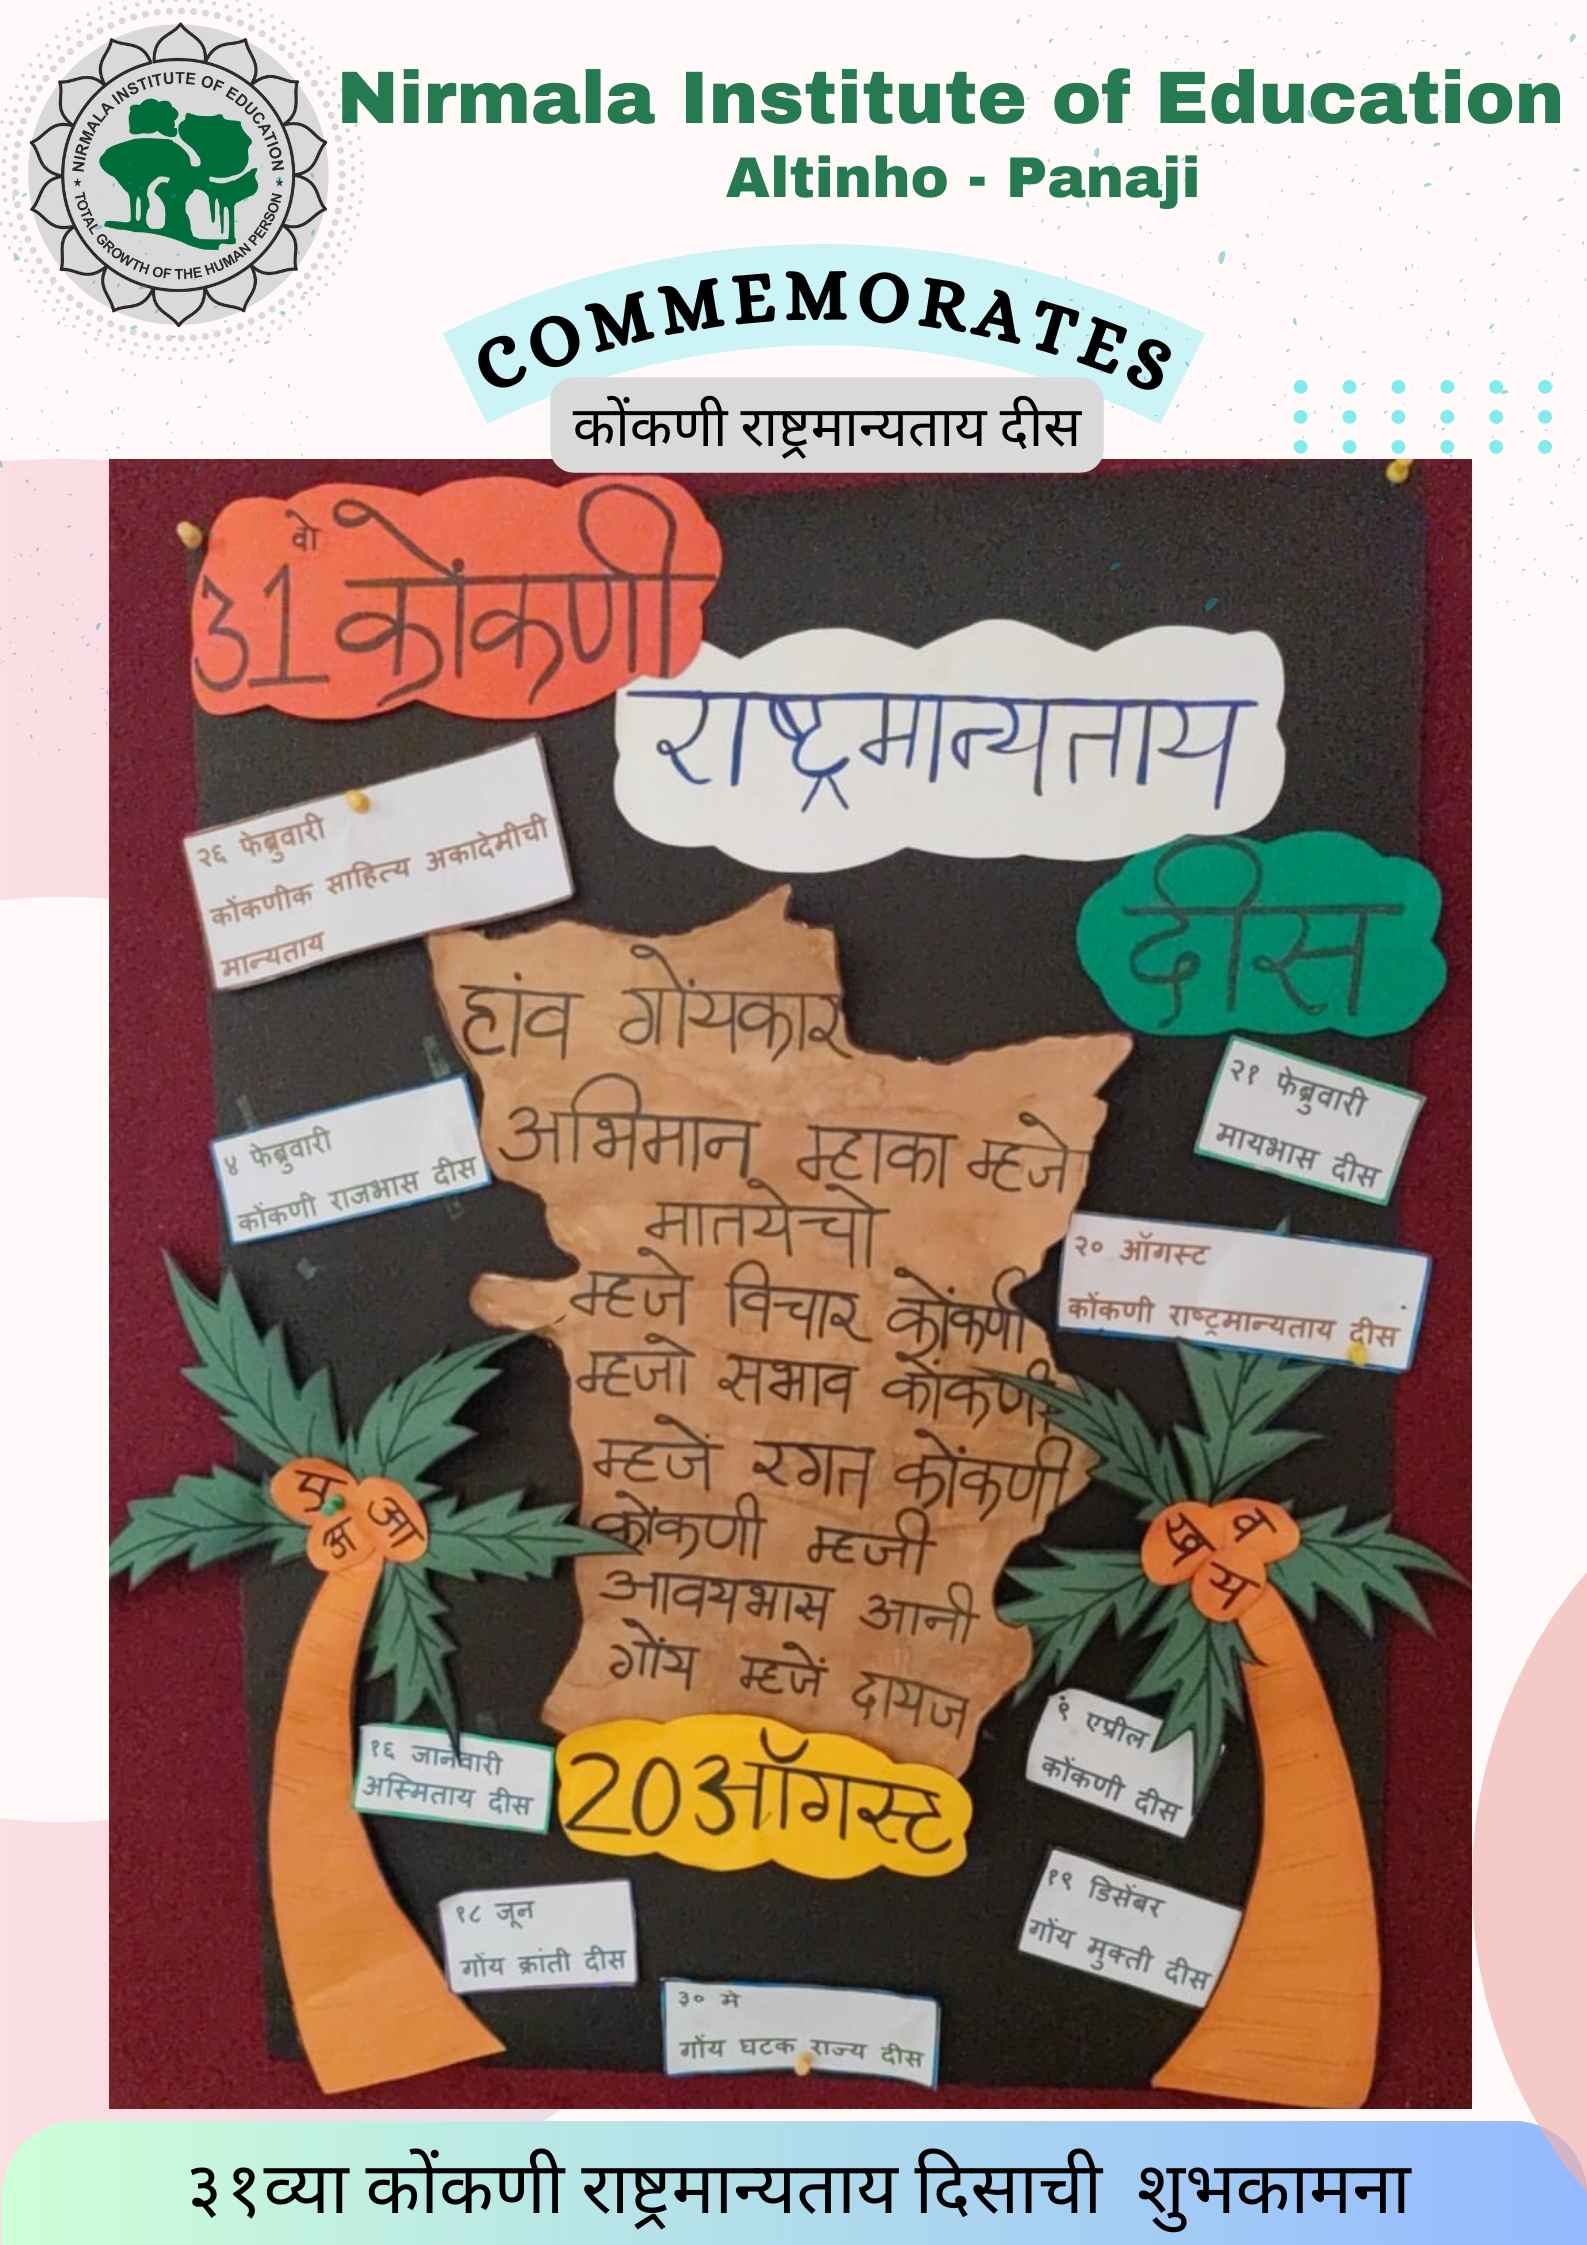 NIRMALA INSTITUTE OF EDUCATION
TOTAL GROWTH OF THE HUMAN PERSON
Nirmala Institute of Education
Altinho - Panaji
COMMEMORATES
कोंकणी राष्ट्रमान्यताय दीस
31 वो कोंकणी
राष्ट्रमान्यताय
दीस
२६ फेब्रुवारी
कोंकणीक साहित्य अकादेमीची
मान्यताय
हांव गोंयकार
अभिमान म्हाका म्हजे
मातयेचो
म्हजे विचार कोंकणी
म्हजो सभाव कोंकणी
म्हजें रगत कोंकणी
कोंकणी म्हजी
आवयभास आनी
गोंय म्हजें दायज
20 ऑगस्ट
४ फेब्रुवारी
कोंकणी राजभास दीस
२१ फेब्रुवारी
मायभास दीस
२० ऑगस्ट
कोंकणी राष्ट्रमान्यताय दीस
आ
व
ख
य
१६ जानेवारी
अस्मिताय दीस
९ एप्रील
कोंकणी दीस
१८ जून
गोंय क्रांती दीस
१९ डिसेंबर
गोंय मुक्ती दीस
३० मे
गोंय घटक राज्य दीस
३१व्या कोंकणी राष्ट्रमान्यताय दिसाची शुभकामना